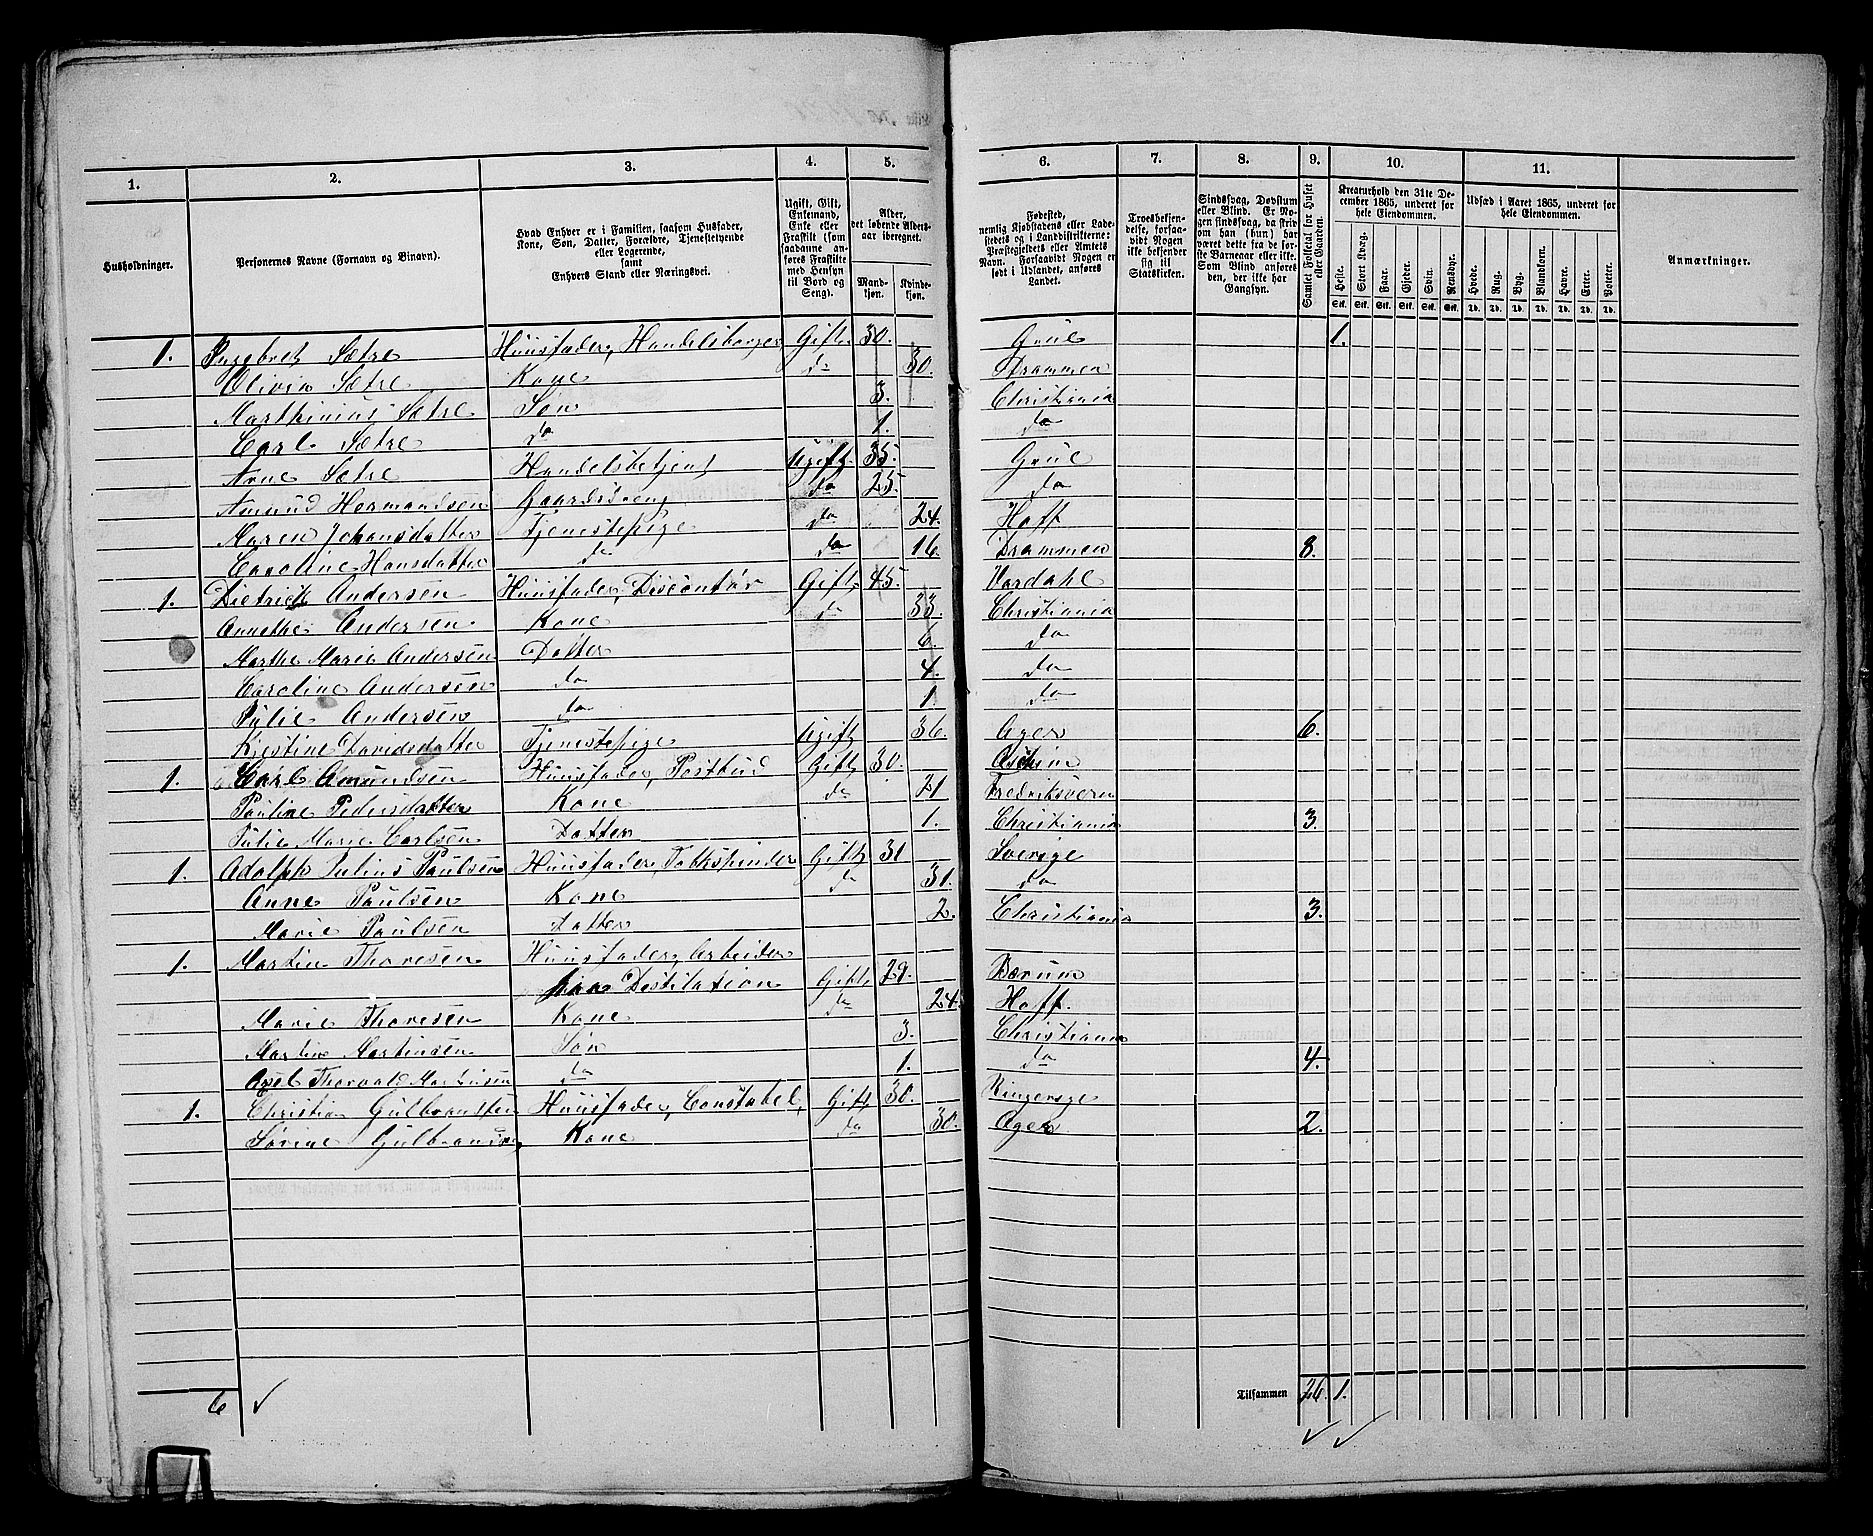 1. 2. 3. 4. 5. 6. 7. 8. 9. 10. 11.
Husholdninger.
Personernes Navne (Fornavn og Binavn).
Hvad Enhver er i Familien, saasom Husfader, Kone, Søn, Datter, Forældre, Tjenestetyende eller Logerende, samt Enhvers Stand eller Næringsvei.
Ugift, Gift, Enkemand, Enke eller Fraskilt (som saadanne anføres Fraskilte med Hensyn til Bord og Seng).
Alder, det løbende Aldersaar iberegnet.
Mandkjøn. Kvindekjøn.
Fødested, nemlig Kjøbstadens eller Ladestedets og i Landdistrikterne: Præstegjeldets eller Amtets Navn. Forsaavidt Nogen er født i Udlandet, anføres Landet.
Troesbekjendelse, forsaavidt Nogen ikke bekjender sig til Statskirken.
Sindssvag, Døvstum eller Blind. Er Nogen sindssvag, da skrives om han (hun) har været dette fra de første Barneaar eller ikke. Som Blind anføres den, der ikke har Gangsyn.
Samlet Folketal for Huset eller Gaarden.
Kreaturhold den 31te December 1865, underet for hele Eiendommen.
Heste. Stort Kvæg. Faar. Gjeder. Svin. Rensdyr.
Udsæd i Aaret 1865, underet for hele Eiendommen.
Hvede. Rug. Byg. Blandkorn. Havre. Erter. Poteter.
Anmærkninger.
Stk. Stk. Stk. Stk. Stk. Stk. Td. Td. Td. Td. Td. Td. Td.
1. Ingebret Sætre Huusfader, Handelsborger Gift 30. Grue 1.
Olivia Sætre Kone do 30. Drammen
Marthinius Sætre Søn 3. Christiania
Carl Sætre do 1. do
Arne Sætre Handelsbetjent Ugift 35. Grue
Amund Hermandsen Gaardsdreng do 25. do
Maren Johansdatter Tjenestepige do 24. Hoff
Caroline Hansdatter do do 16. Drammen 8.
1. Dietrich Andersen Huusfader, Discontør Gift 45. Vardahl
Annethe Andersen Kone do 33. Christiania
Marthe Marie Andersen Datter 6. do
Caroline Andersen do 4. do
Julie Andersen do 1 do
Kjestine Davidsdatter Tjenestepige Ugift 36. Ager 6.
1. Carl Amundsen Huusfader, Postbud Gift 30. Askim
Pauline Pedersdatter Kone do 21 Fredriksvern
Julie Marie Carlsen Datter 1. Christiania 3.
1. Adolph Julius Paulsen Huusfader, Gift 31 Sverige
Anne Paulsen Kone do 31. do
Marie Paulsen Datter 2. Christiania 3.
1. Martin Thoresen Huusfader, Arbeider
paa Destilation Gift 29. Bærum
Marie Thoresen Kone do 24. Hoff.
Martin Martinsen Søn 3. Christiania
Axel Thorvald Martinsen do 1. do 4.
1. Christian Gulbransen Huusfader, Constabel, Gift 30. Ringerige
Sørine Gulbransen Kone do 30. Ager 2.
6 Tilsammen 26. 1.